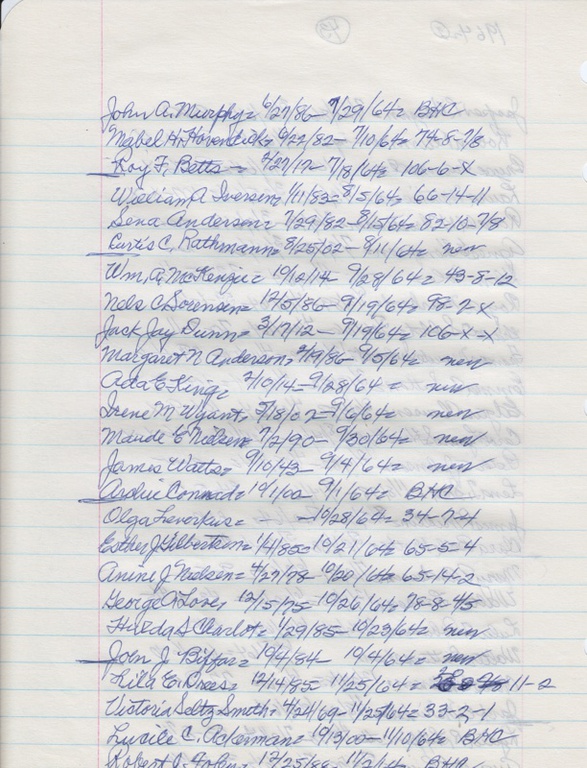 1964-② ㊸
John A. Murphy = 6/27/86 - 7/29/64 = BHC
Mabel H. Hovendick = 6/22/82 - 7/10/64 = 74-8-7/8
Roy F. Betts - 2/27/17 - 7/18/64 = 106-6-X
William A Iversen = 1/11/83 = 8/5/64 = 66-14-11
Sena Anderson = 7/29/82 - 8/15/64 = 82-10-7/8
Curtis C. Rathmann = 8/25/02 - 8/11/64 = new
Wm. A. McKenzie = 10/12/14 - 9/28/64 = 43-8-12
Nels C Sorensen = 12/5/86 - 9/19/64 = 98-2-X
Jack Jay Dunn = 3/17/12 - 9/19/64 = 106-X-X
Margaret N Anderson = 2/19/86 - 9/5/64 = new
Ada E King = 2/10/14 - 9/28/64 = new
Irene M Wyant, 5/18/02 - 9/6/64 = new
Maude E Nielsen 7/2/90 - 9/30/64 = new
James Watts = 9/10/43 - 9/4/64 = new
Archie Conrad = 10/1/00 9/1/64 = BHC
Olga = - - 10/28/64 = 34-7-4
Esther J Gilbertson = 1/4/85 = 10/21/64 = 65-5-4
Anine J Nielsen = 4/27/78 - 10/20/64 = 65-14-2
George A Love, 12/5/75 - 10/26/64 = 78-8-4/5
Hulda S Charlot = 1/29/85 - 10/23/64 = new
John J. = 10/4/84 - 10/4/64 = new
Lila E. = 12/14/85 11/25/64 = 11-2
Victoria Seltz Smith = 4/24/69 - 11/25/64 = 33-2-1
Lucile C. Ackerman = 10/13/00 - 11/10/64 = BHC
Robert J. 12/25/86 BHC